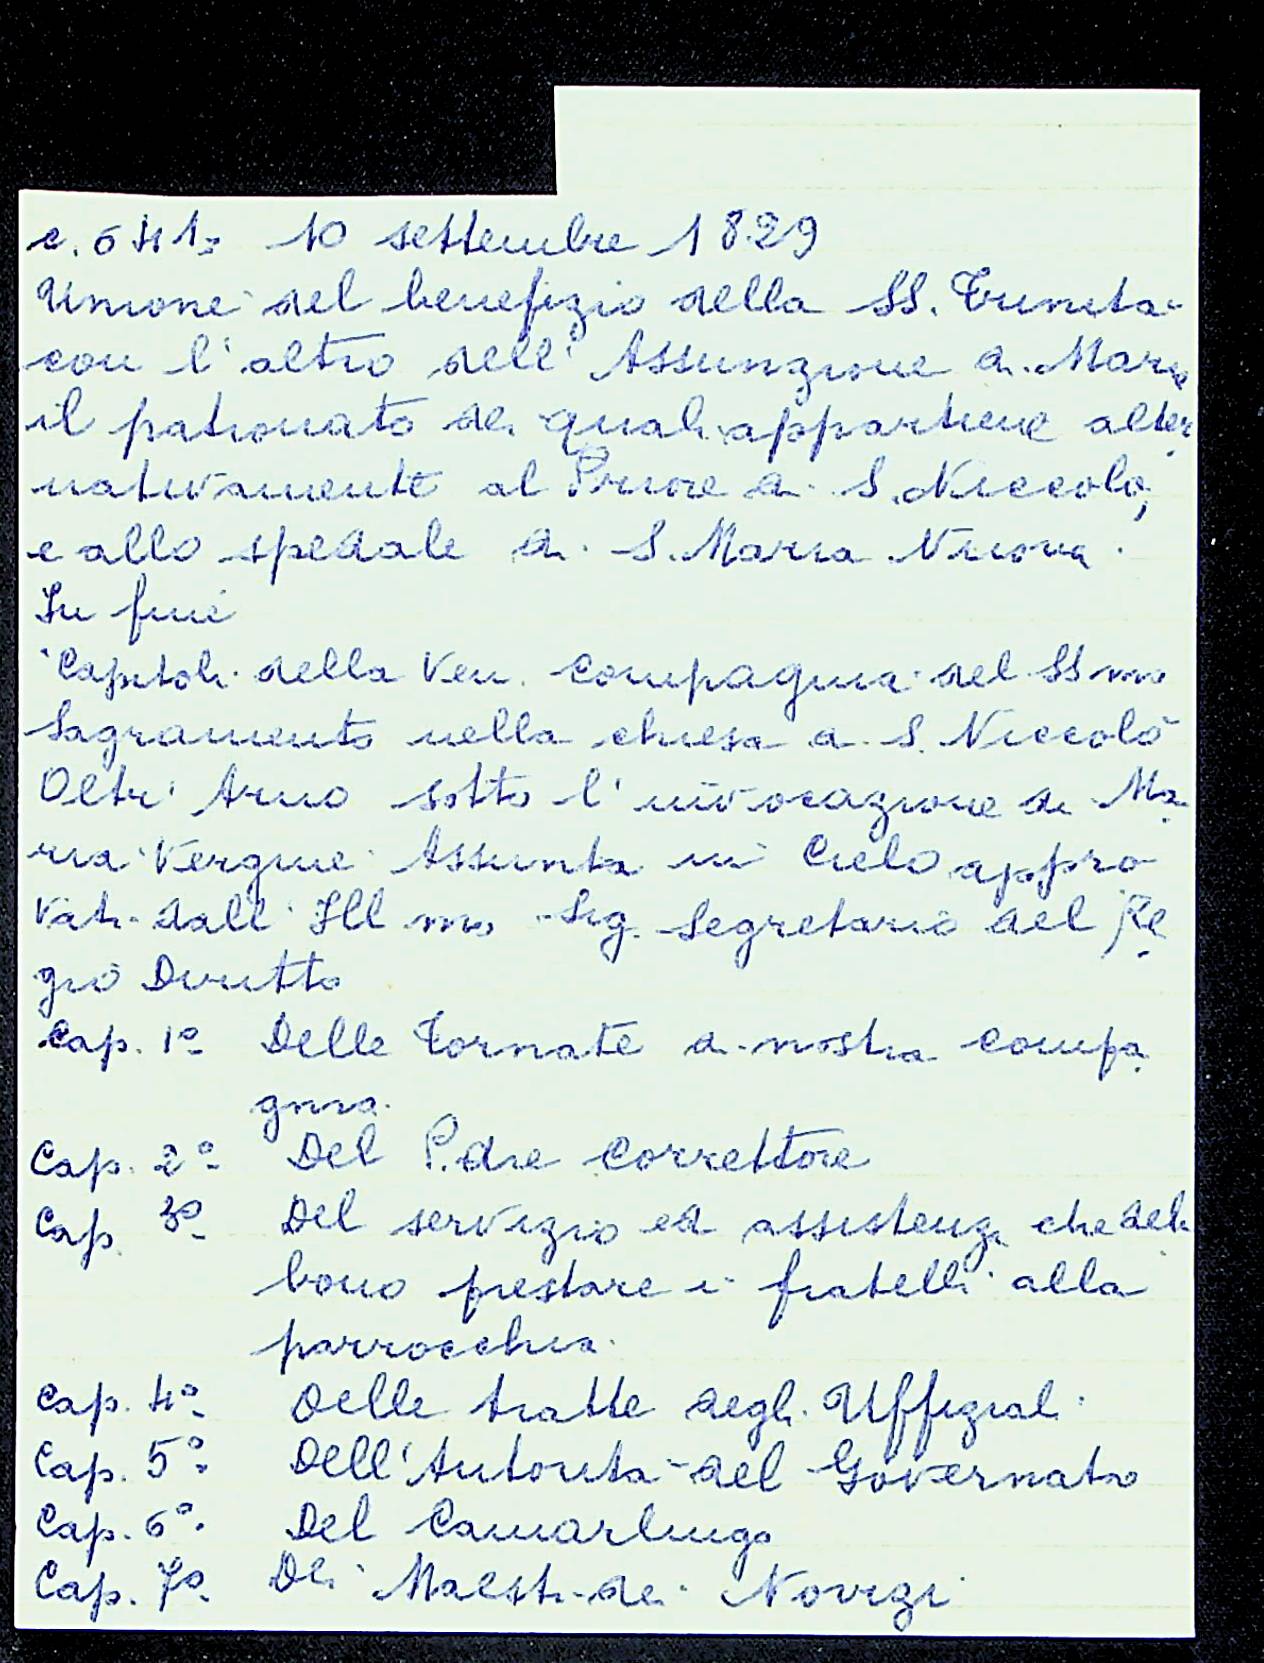 c. 641: 10 settembre 1829
Unione del benefizio della SS. Trinità
con l'altro dell'Assunzione di Maria
il patronato dei quali appartiene alter
nativamente al Priore di S. Niccolò,
e allo spedale di S. Maria Nuova.
In fine
Capitoli della Ven. Compagnia del SSmo
Sagramento nella chiesa di S. Niccolò
Oltr'Arno sotto l'invocazione di Ma
ria Vergine Assunta in Cielo appro
vati dall'Illmo Sig. Segretario del Re
gio Diritto
Cap. 1º Delle Tornate di nostra compa
gnia.
Cap. 2º Del P.dre Correttore
Cap. 3º Del servizio ed assistenza che deb
bono prestare i fratelli alla
parrocchia.
Cap. 4º Delle tratte degli Uffiziali
Cap. 5º Dell'Autorità del Governato
Cap. 6º. Del Camarlingo
Cap. 7º. Dei Maestri dei Novizi